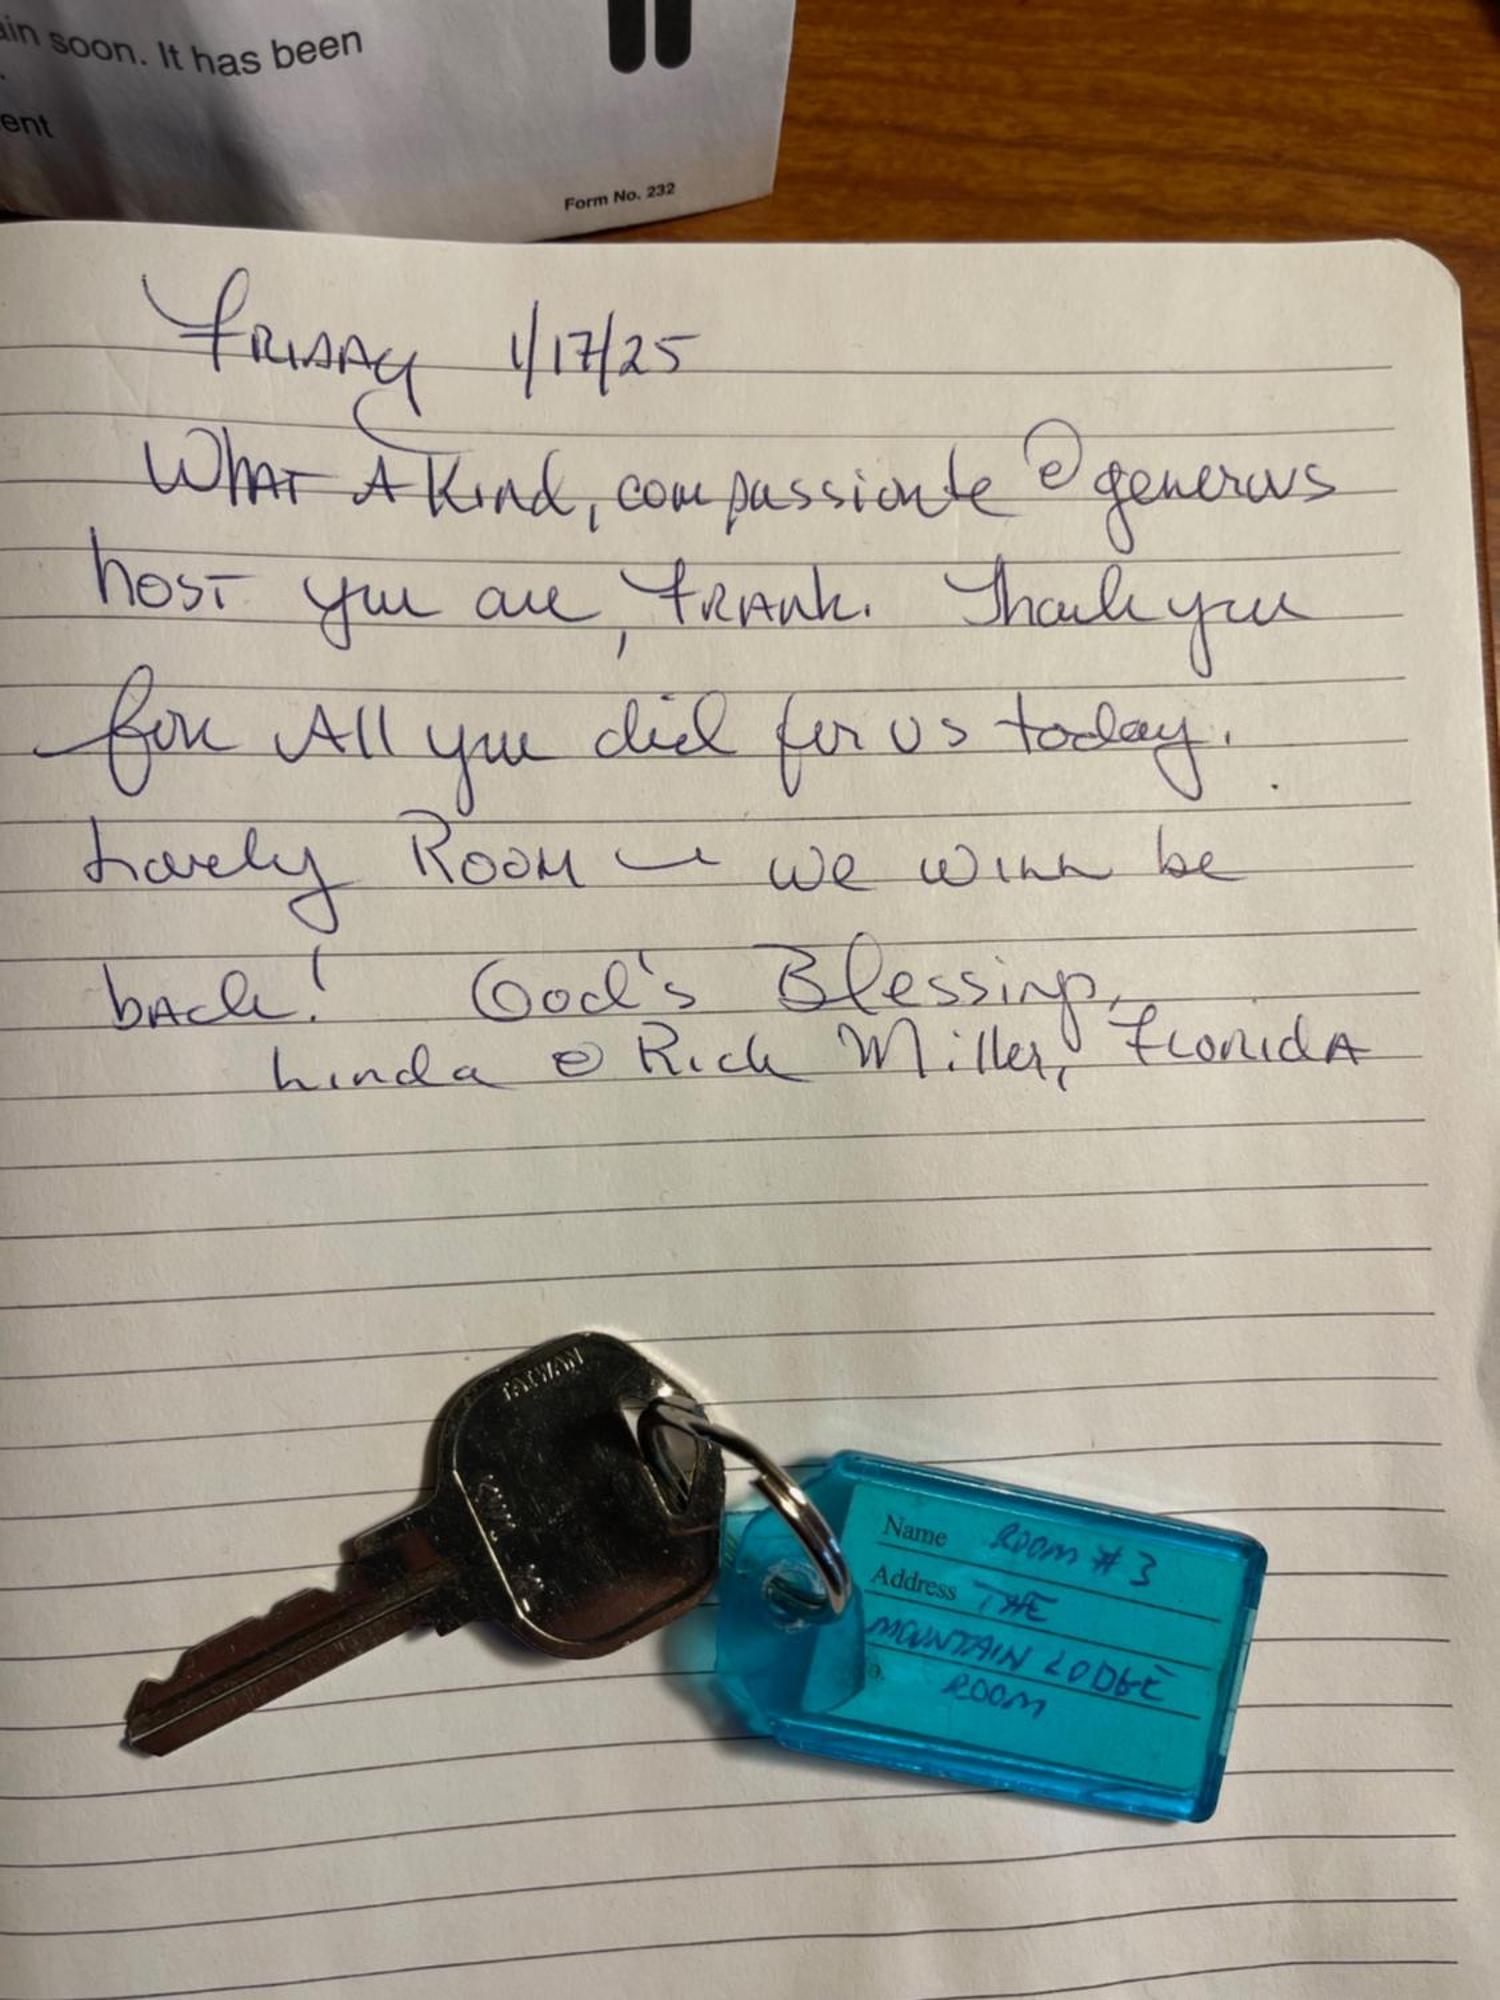 ain soon. It has been
ent
Form No. 232
Friday 1/17/25
What A Kind, compassionte & generous
host you are, Frank. Thank you
for All you did for us today.
Lovely Room — we will be
back! God's Blessings,
Linda & Rick Miller, Florida
TAIWAN
Name ROOM #3
Address THE
MOUNTAIN LODGE
ROOM